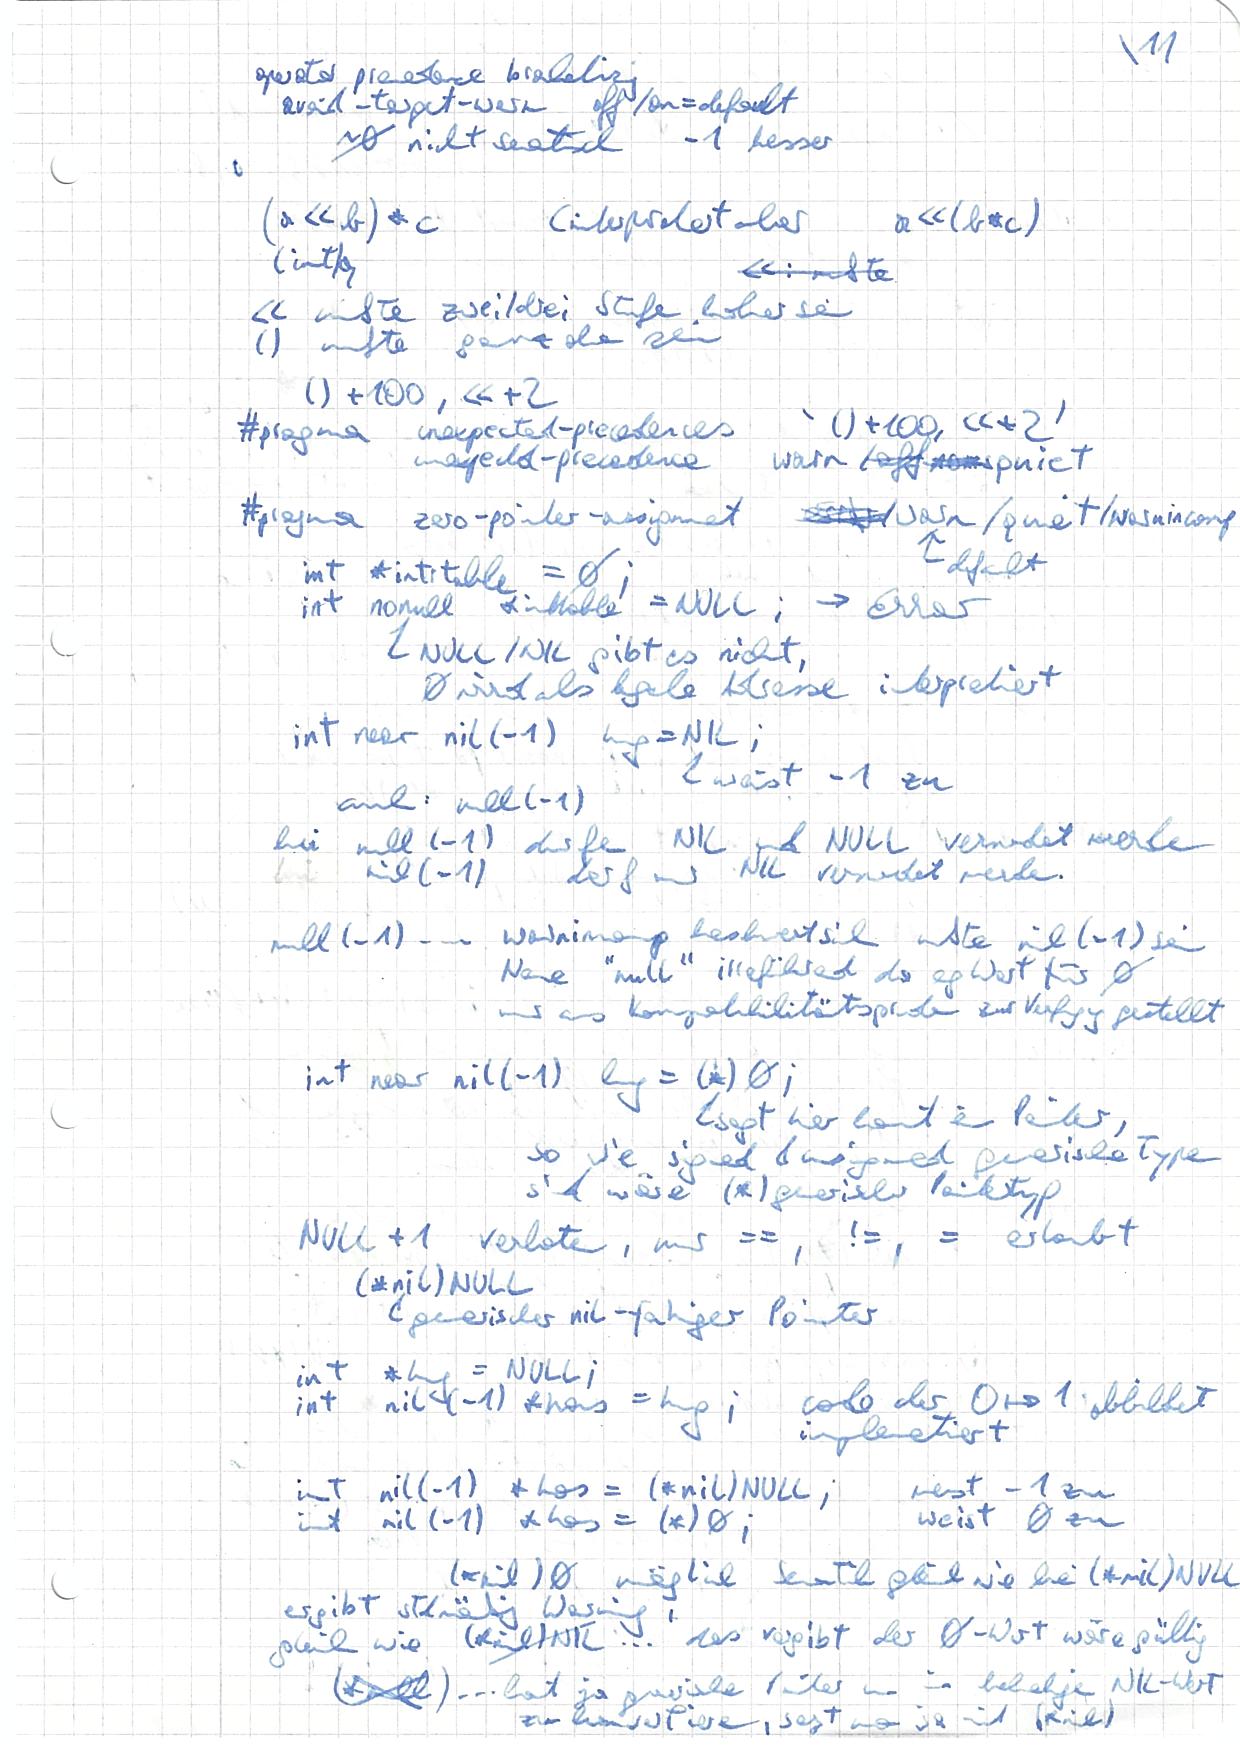 \11
operator precedence
avoid-target-warn off/on=default
~0 nicht -1 besser
(a<<b)*c aber a<<(b*c)
(int)a
<< müßte zwei/drei Stufe höher sei
() müßte ganz oben sein
() +100, <<+2
#pragma unexpected-precedences '()+100, <<+2'
unexpected-precedence warn / quiet
#pragma zero-pointer-assignment /warn/quiet/warnincomp
default
int *intitable = 0;
int nonull = NULL; → Error
NULL/NIL gibt es nicht,
0 wird als legale Adresse interpretiert
int near nil(-1) hug=NIL;
weist -1 zu
auch: null(-1)
bei null(-1) dürfe NIL und NULL verwendet werde
bei nil(-1) darf nur NIL verwendet werde.
null(-1) --- warnincomp beschwert sich müßte nil(-1) sei
Name "null" irreführend da Wert für 0
nur aus Kompatibilitätsgründen zur Verfügung gestellt
int near nil(-1) hug = (*)0;
sagt hier kommt ein Pointer,
so wie signed & unsigned generische Type
sind wäre (*) generischer Pointertyp
NULL+1 verboten, nur ==, !=, = erlaubt
(*nil)NULL
generischer nil-fähiger Pointer
int *hug = NULL;
int nil(-1) *hos = hug; code der 0↦1 abbildet
implementiert
int nil(-1) *hos = (*nil)NULL; weist -1 zu
int nil(-1) *hos = (*)0; weist 0 zu
(*nil)0 möglich Semantik gleich wie bei (*nil)NULL
ergibt Warning,
gleich wie (*nil)NIL ... der 0-Wert wäre gültig
... ja generische Pointer NIL-Wert
zu konvertiere, sagt ma ja mit (*nil)